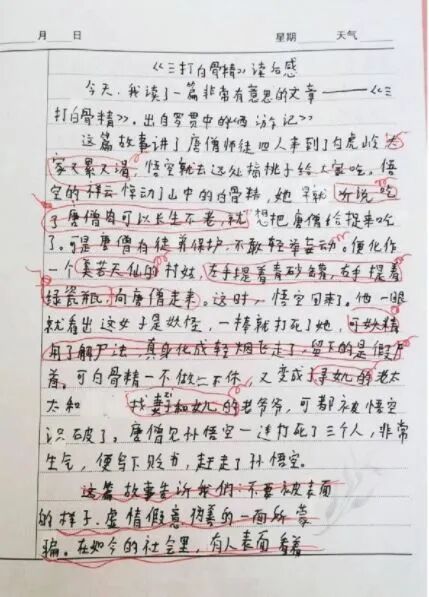 月 日 星期 天气
《三打白骨精》读后感
今天,我读了一篇非常有意思的文章——《三
打白骨精》,出自罗贯中的《西游记》
这篇故事讲了唐僧师徒四人来到了白虎岭大
家又累又渴,悟空就去远处摘桃子给大家吃,悟
空的祥云惊动了山中的白骨精,她早就听说吃
了唐僧肉可以长生不老,就想把唐僧给捉来吃
了。可是唐僧有徒弟保护,不敢轻举妄动。便化作
一个美若天仙的村妓,左手提着青砂罐,右手提着
绿瓷瓶,向唐僧走来。这时,悟空回来了。他一眼
就看出这女子是妖怪,一棒就打死了她,可妖精
用了解尸法,真身化成轻烟飞走了,留下的是假尸
首。可白骨精一不做二不休,又变成了寻女儿的老太
太和 找妻子和女儿的老爷爷,可都被悟空
识破了。唐僧见孙悟空一连打死了三个人,非常
生气,便写下贬书,赶走了孙悟空。
这篇故事告诉我们:不要被表面
的样子、虚情假意伪善的一面所蒙
骗。在如今的社会里,有人表面看着